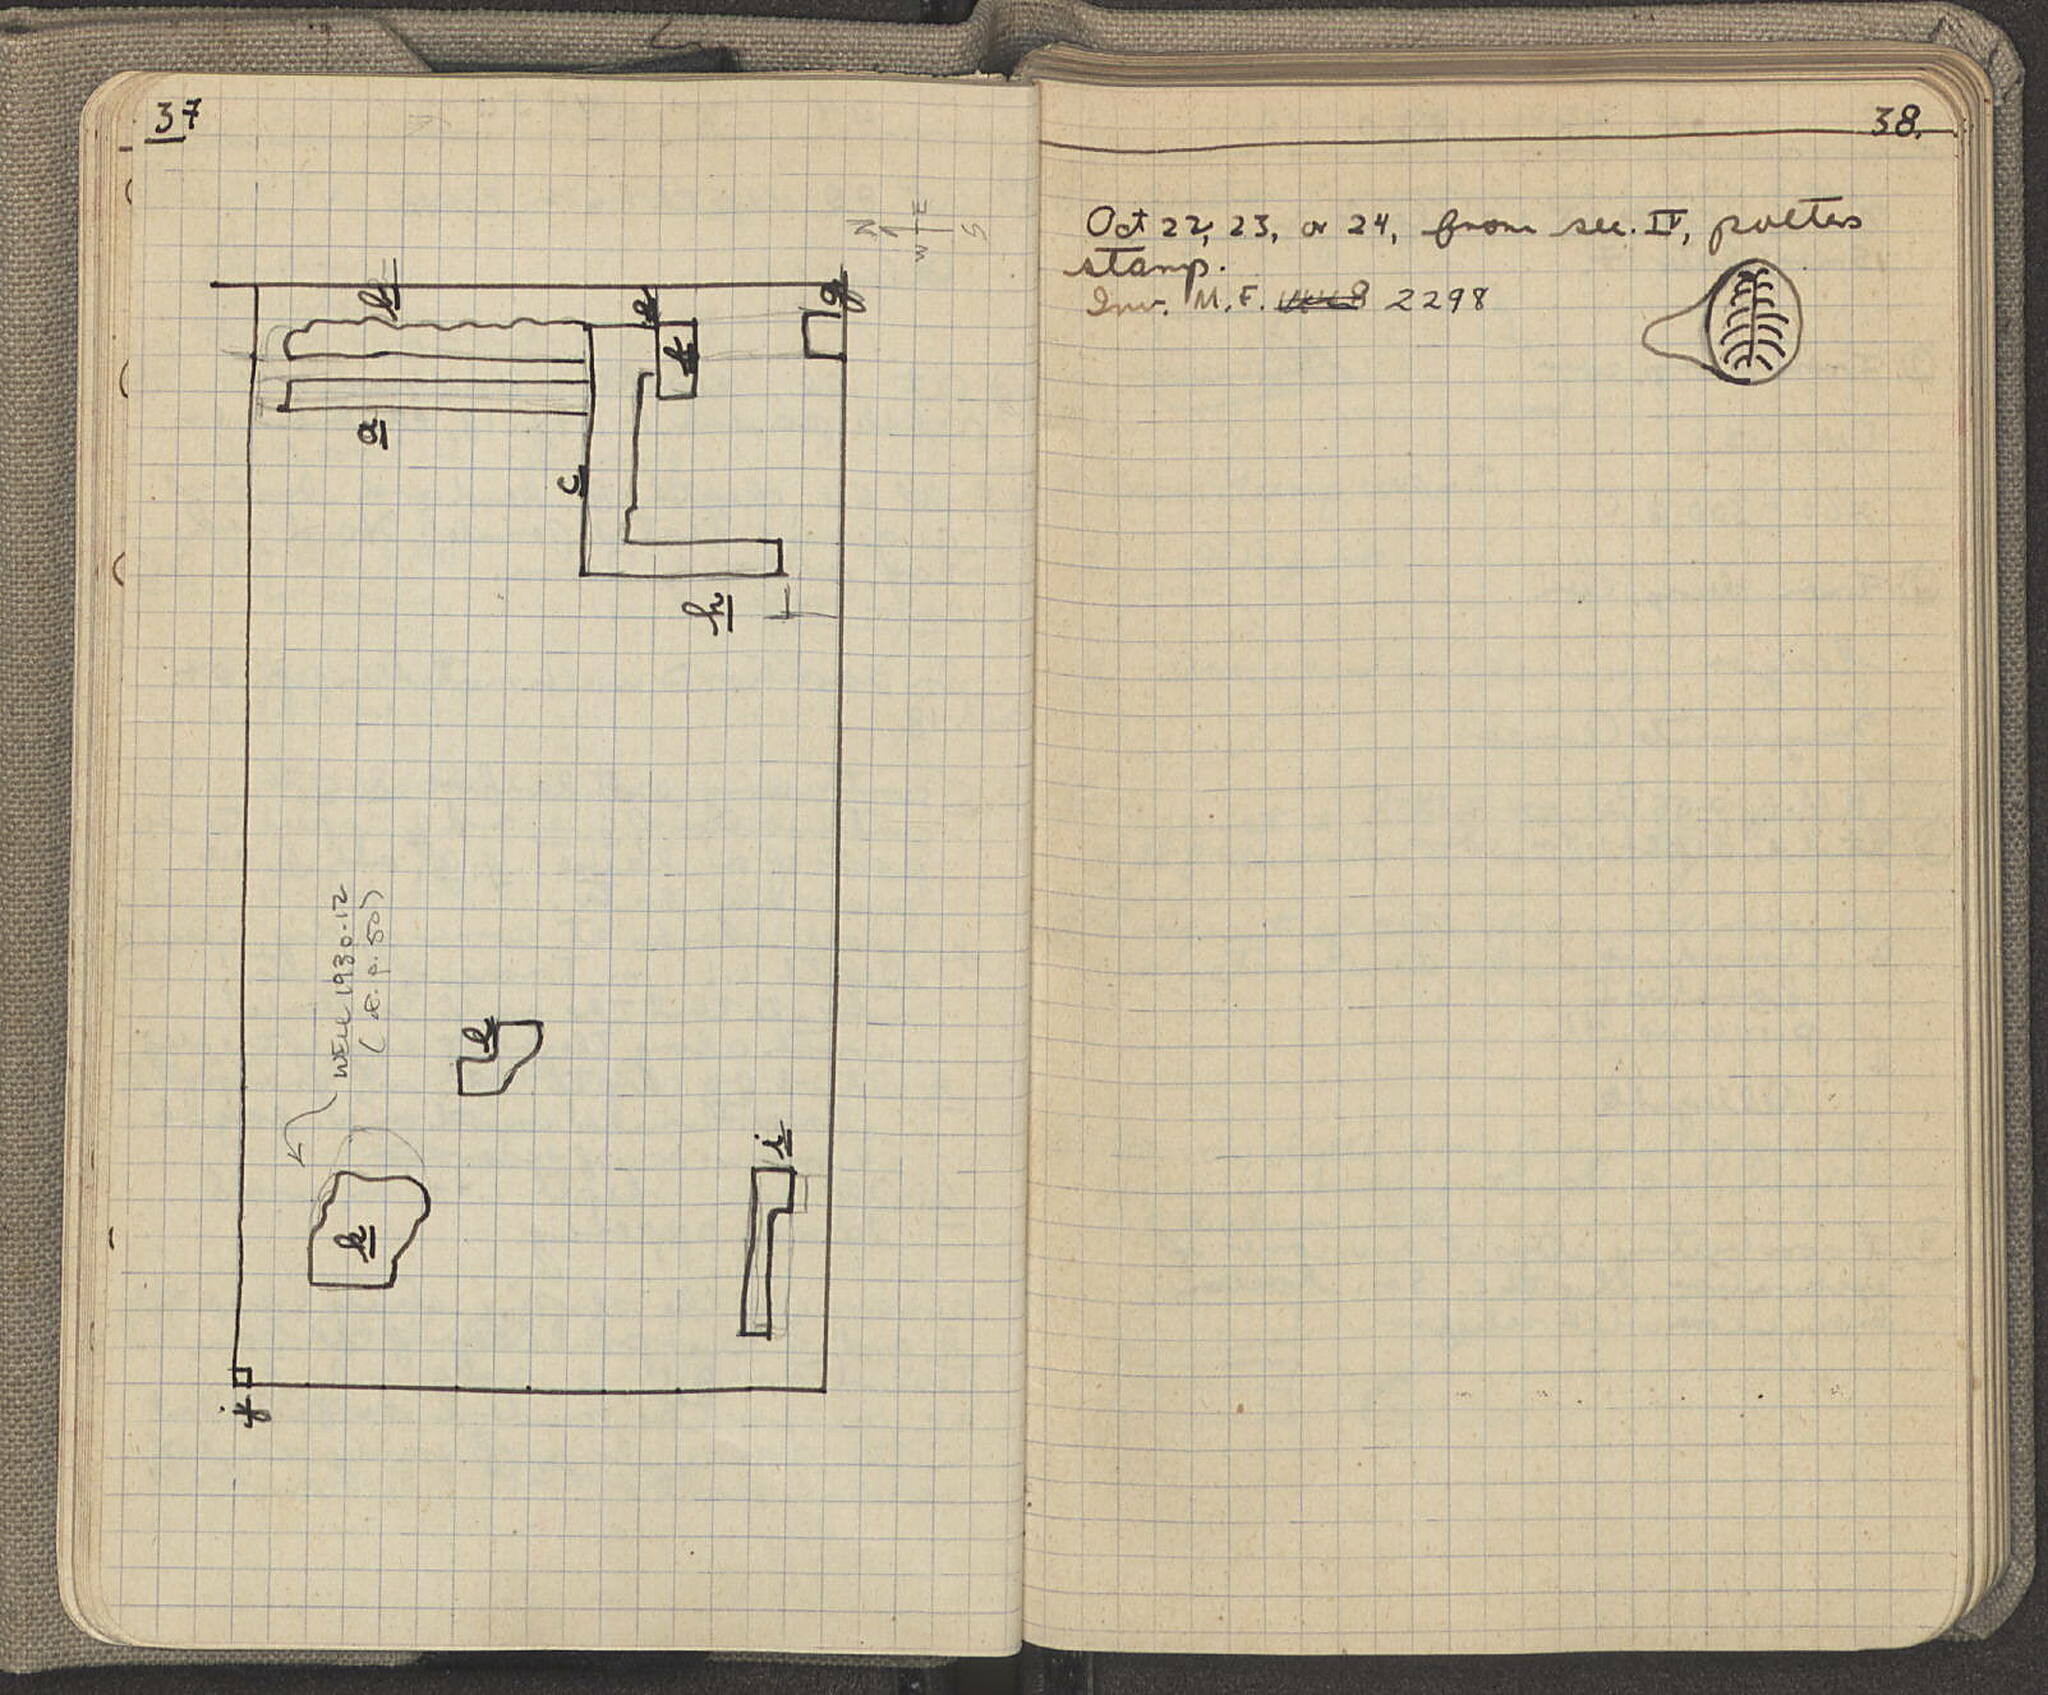 37
N
W E
S
b
e
g
f
a
c
h
WELL 1930-12
( p. 50)
l
i
k
j
38.
Oct 22, 23, or 24, from sec. IV, potters
stamp.
Inv. M.F. 2298